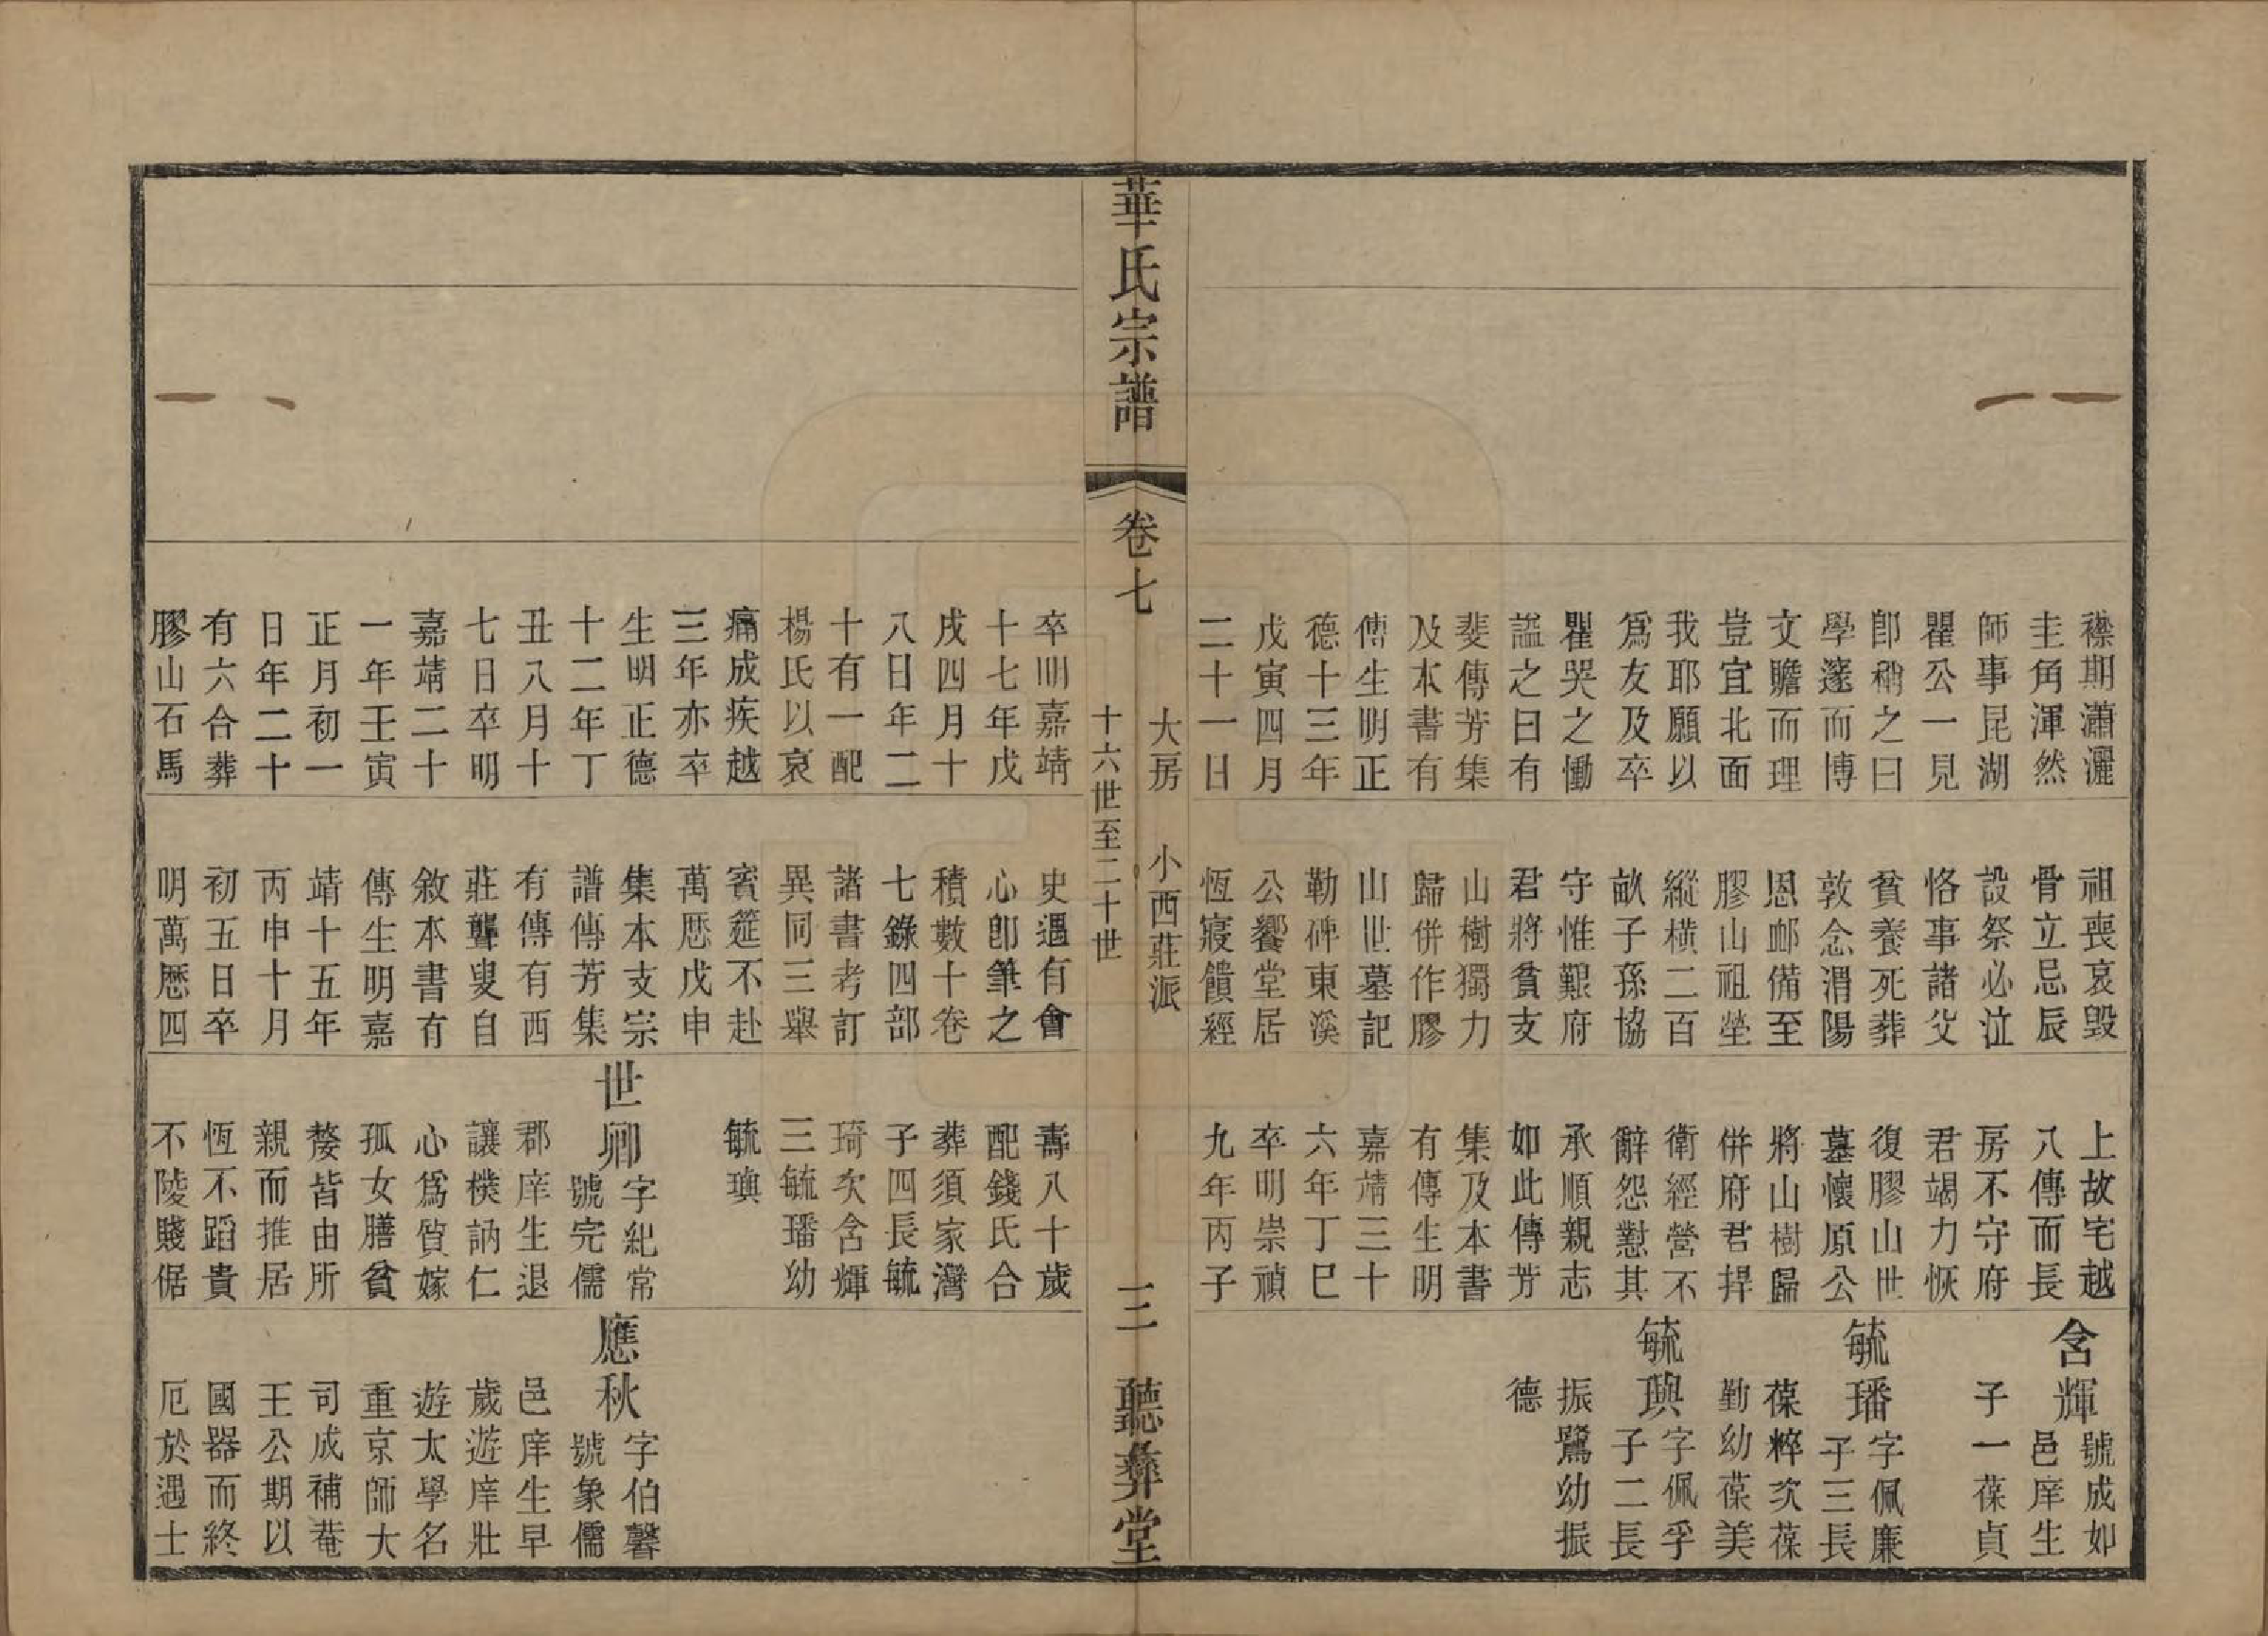 襟期瀟灑
圭角渾然
師事昆湖
瞿公一見
卽稍之曰
學邃而博
文贍而理
豈宜北面
我耶願以
爲友及卒
瞿哭之慟
謚之曰有
斐傳芳集
及本書有
傳生明正
德十三年
戊寅四月
二十一日
祖喪哀毀
骨立忌辰
設祭必泣
恪事諸父
貧養死葬
敦念渭陽
恩卹備至
膠山祖塋
縱横二百
畝子孫協
守惟艱府
君將貧支
山樹獨力
歸併作膠
山世墓記
勒碑東溪
公饗堂居
恆寢饋經
上故宅越
八傳而長
房不守府
君竭力恢
復膠山世
墓懷原公
將山樹歸
併府君捍
衛經營不
辭怨懟其
承順親志
如此傳芳
集及本書
有傳生明
嘉靖三十
六年丁巳
卒明崇禎
九年丙子
含輝
號成如
邑庠生
子一葆貞
毓璠
字佩廉
子三長
葆粹次葆
勤幼葆美
毓璵
字佩孚
子二長
振鷺幼振
德
華氏宗譜
卷七
大房 小西莊派
十六世至二十世
三
聽彝堂
卒明嘉靖
十七年戊
戌四月十
八日年二
十有一配
楊氏以哀
痛成疾越
三年亦卒
生明正德
十二年丁
丑八月十
七日卒明
嘉靖二十
一年壬寅
正月初一
日年二十
有六合葬
膠山石馬
史遇有會
心卽筆之
積數十卷
七錄四部
諸書考訂
異同三舉
賓筵不赴
萬厯戊申
集本支宗
譜傳芳集
有傳有西
莊聾叟自
敘本書有
傳生明嘉
靖十五年
丙申十月
初五日卒
明萬厯四
壽八十歲
配錢氏合
葬須家灣
子四長毓
琦次含輝
三毓璠幼
毓璵
世卿
字紀常
號完儒
郡庠生退
讓樸訥仁
心爲質嫁
孤女膳貧
嫠皆由所
親而推居
恆不蹈貴
不陵賤倨
應秋
字伯馨
號象儒
邑庠生早
歲遊庠壯
遊太學名
重京師大
司成補菴
王公期以
國器而終
厄於遇士